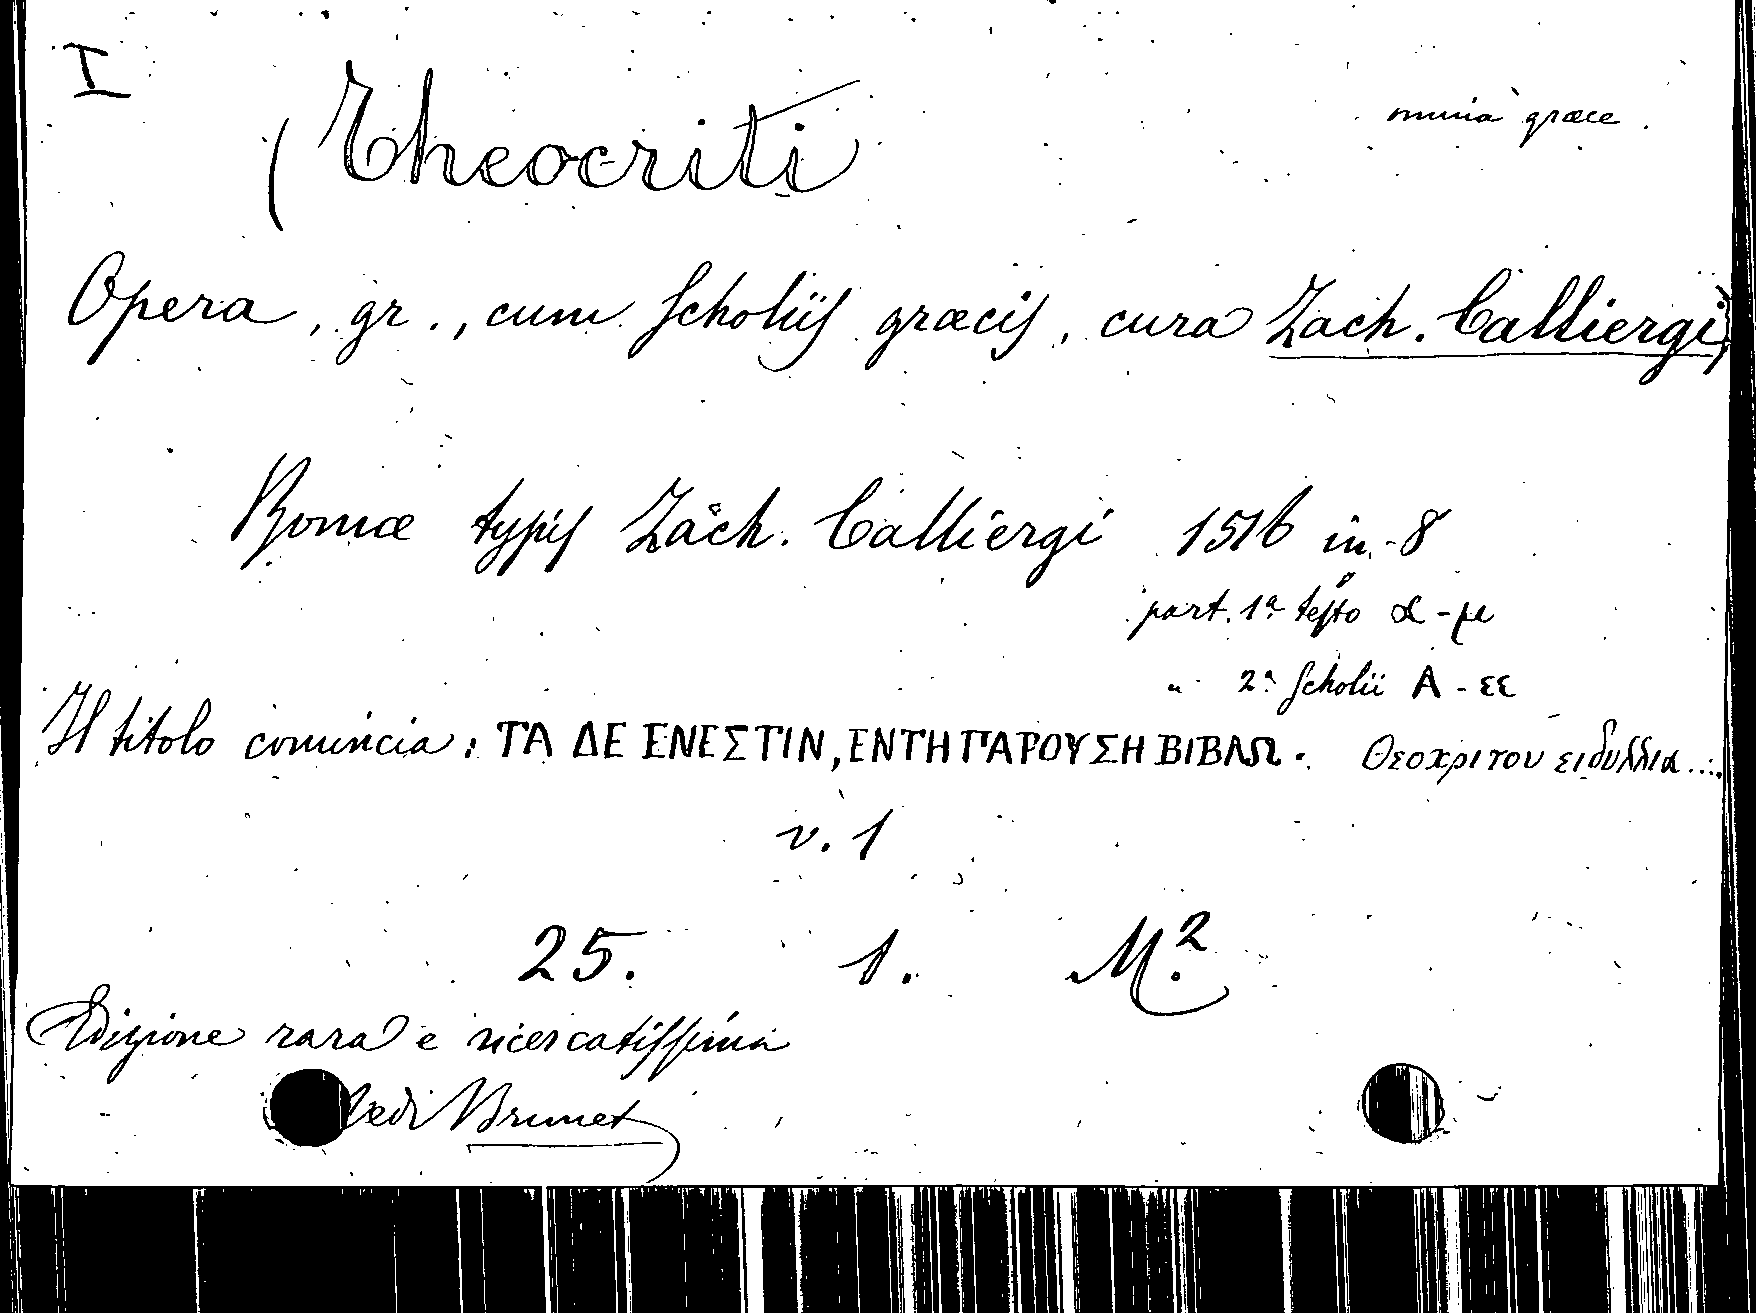 I
(Theocriti
omnia græce.
Opera, gr., cum Scholiis græcis, cura Zach. Calliergi)
Romæ typis Zach. Calliergi 1516 in-8
part. 1ª testo α - με
" 2ª Scholii A - εε
Il titolo comincia: ΤΑ ΔΕ ΕΝΕΣΤΙΝ, ΕΝ ΤΗ ΠΑΡΟΥΣΗ ΒΙΒΛΩ. Θεοκριτου ειδυλλια....
v. 1
25. 1. M.2
Edizione rara e ricercatissima
Vedi Brunet